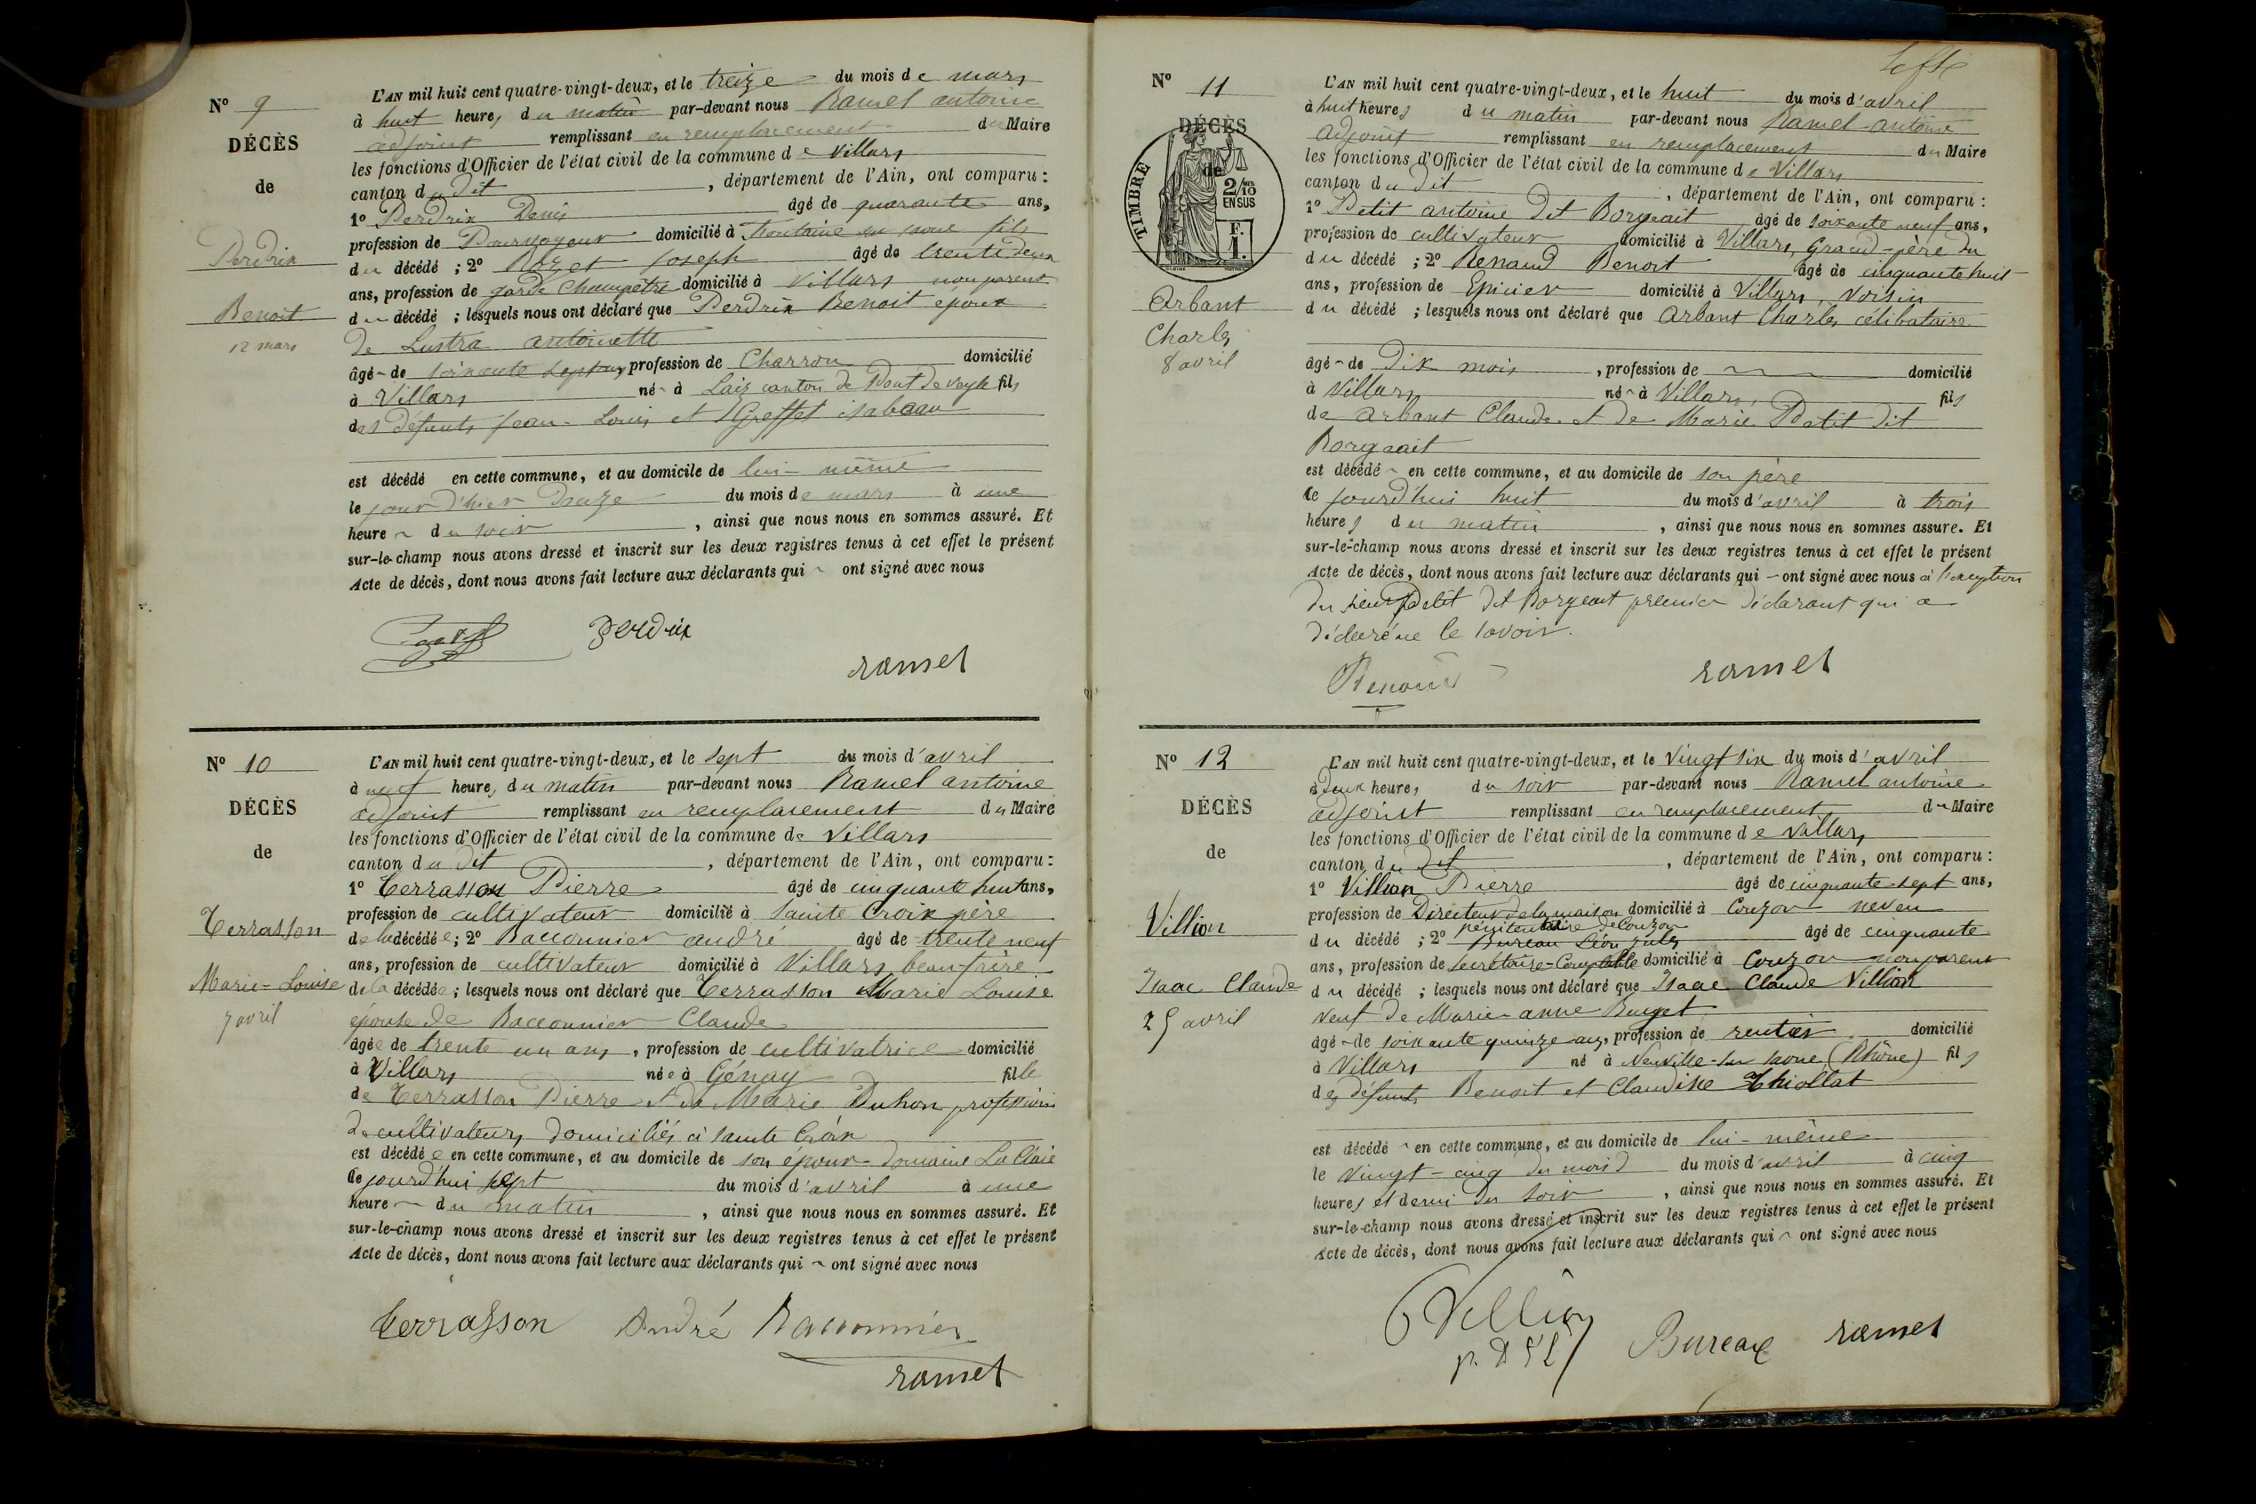 Nº 9
DÉCÈS
de
Perdrix
Benoit
12 mars
L'AN mil huit cent quatre-vingt-deux, et le treize du mois de mars
à huit heures du matin par-devant nous Ramel antoine
adjoint remplissant en remplacement du Maire
les fonctions d'Officier de l'état civil de la commune de Villars
canton du dit, département de l'Ain, ont comparu :
1º Perdrix Denis âgé de quarante ans,
profession de Pourvoyeur domicilié à fontaine fils
du décédé ; 2º Rozet Joseph âgé de trente deux
ans, profession de garde Champêtre domicilié à Villars non parent
du décédé ; lesquels nous ont déclaré que Perdrix Benoit époux
de Lustra antoinette
âgé de soixante sept ans, profession de Charron domicilié
à Villars né à Laiz canton de Pont de veyle fils
des défunts Jean-Louis et Greffet isabeau
est décédé en cette commune, et au domicile de lui-même
le jour d'hier douze du mois de mars à une
heure du soir, ainsi que nous nous en sommes assuré. Et
sur-le-champ nous avons dressé et inscrit sur les deux registres tenus à cet effet le présent
Acte de décès, dont nous avons fait lecture aux déclarants qui ont signé avec nous
Perdrix
ramel
Nº 10
DÉCÈS
de
Terrasson
Marie-Louise
7 avril
L'AN mil huit cent quatre-vingt-deux, et le sept du mois d'avril
à neuf heures du matin par-devant nous Ramel antoine
adjoint remplissant en remplacement du Maire
les fonctions d'Officier de l'état civil de la commune de Villars
canton du dit, département de l'Ain, ont comparu :
1º Terrasson Pierre âgé de cinquante huit ans,
profession de cultivateur domicilié à Sainte Croix père
de la décédée ; 2º Bacconnier andré âgé de trente neuf
ans, profession de cultivateur domicilié à Villars beau frère
de la décédée ; lesquels nous ont déclaré que Terrasson Marie Louise
épouse de Bacconnier Claude
âgée de trente un ans, profession de cultivatrice domicilié
à Villars née à Génay fille
de Terrasson Pierre et de Marie Duhon profession
de cultivateurs domiciliés à Sainte Croix
est décédée en cette commune, et au domicile de son époux domaine La Claie
le jourd'hui sept du mois d'avril à une
heure du matin, ainsi que nous nous en sommes assuré. Et
sur-le-champ nous avons dressé et inscrit sur les deux registres tenus à cet effet le présent
Acte de décès, dont nous avons fait lecture aux déclarants qui ont signé avec nous
terrasson André Bacconnier
ramel
Nº 11
DÉCÈS
de
TIMBRE
2/10 EN SUS
F. 1.
Arbant
Charles
8 avril
L'AN mil huit cent quatre-vingt-deux, et le huit du mois d'avril
à huit heures du matin par-devant nous Ramel antoine
adjoint remplissant en remplacement du Maire
les fonctions d'Officier de l'état civil de la commune de Villars
canton du dit, département de l'Ain, ont comparu :
1º Petit antoine dit Borgeait âgé de soixante neuf ans,
profession de cultivateur domicilié à Villars, Grand-père du
du décédé ; 2º Renaud Benoit âgé de cinquante huit
ans, profession de Epicier domicilié à Villars, voisin
du décédé ; lesquels nous ont déclaré que Arbant Charles célibataire
âgé de dix mois, profession de domicilié
à Villars né à Villars, fils
de arbant Claude et de Marie Petit dit
Borgeait
est décédé en cette commune, et au domicile de son père
le jourd'hui huit du mois d'avril à trois
heures du matin, ainsi que nous nous en sommes assuré. Et
sur-le-champ nous avons dressé et inscrit sur les deux registres tenus à cet effet le présent
Acte de décès, dont nous avons fait lecture aux déclarants qui ont signé avec nous à l'exception
du sieur Petit dit Borgeait premier déclarant qui a
déclaré ne le savoir.
Renaud ramel
Nº 12
DÉCÈS
de
Villion
Isaac Claude
25 avril
L'AN mil huit cent quatre-vingt-deux, et le vingt six du mois d'avril
à deux heures du soir par-devant nous Ramel antoine
adjoint remplissant en remplacement du Maire
les fonctions d'Officier de l'état civil de la commune de Villars
canton du dit, département de l'Ain, ont comparu :
1º Villion Pierre âgé de cinquante-sept ans,
profession de Directeur de la maison domicilié à Couzon neveu
pénitentiaire de Couzon
du décédé ; 2º Bureau Léon Jules âgé de cinquante
ans, profession de Secrétaire-Comptable domicilié à Couzon non parent
du décédé ; lesquels nous ont déclaré que Isaac Claude Villion
veuf de Marie anne Buyet
âgé de soixante quinze ans, profession de rentier domicilié
à Villars né à Neuville-sur Saone (Rhône) fils
des défunts Benoit et Claudine Thiollat
est décédé en cette commune, et au domicile de lui-même
le vingt-cinq du mois d du mois d'avril à cinq
heures et demi du soir, ainsi que nous nous en sommes assuré. Et
sur-le-champ nous avons dressé et inscrit sur les deux registres tenus à cet effet le présent
Acte de décès, dont nous avons fait lecture aux déclarants qui ont signé avec nous
Villion
Bureau ramel